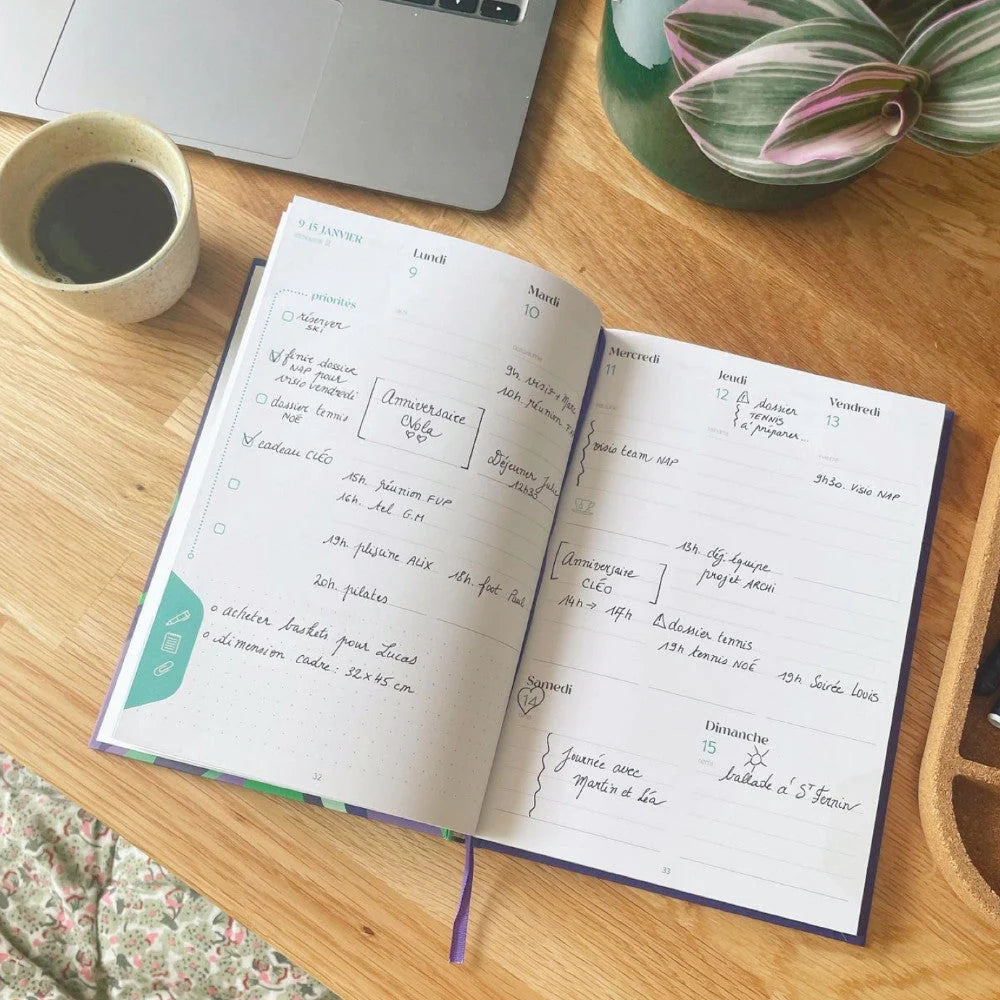 9-15 JANVIER
semaine 2
priorités
réserver
SKI
finir dossier
NAP pour
visio vendredi
dossier tennis
NOÉ
cadeau CLÉO
o acheter baskets pour Lucas
o dimension cadre : 32 x 45 cm
32
Lundi
9
Anniversaire
Nola
15h. réunion FVP
16h. tel G.M
19h. piscine ALIX
20h. pilates
Mardi
10
9h. visio + Marc
10h. réunion
Déjeuner Julie
12h35
18h. foot Paul
Mercredi
11
visio team NAP
Anniversaire
CLÉO
14h → 17h
Jeudi
12
dossier
TENNIS
à préparer...
13h. déj. équipe
projet ARCHI
dossier tennis
19h tennis NOÉ
Vendredi
13
9h30. Visio NAP
19h. Soirée Louis
Samedi
14
Journée avec
Martin et Léa
Dimanche
15
rémi
ballade à St Fernin
33